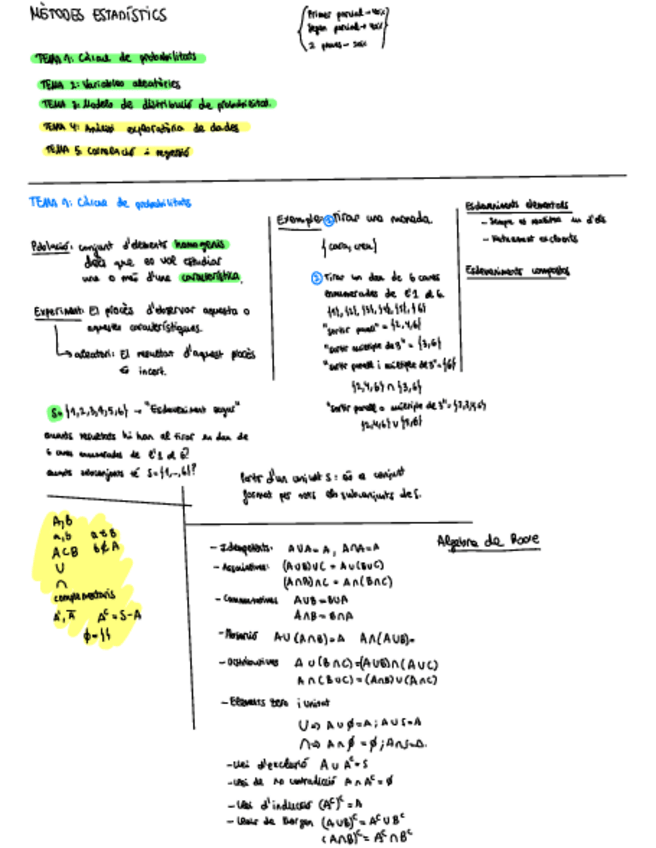 MÈTODES ESTADÍSTICS
Primer parcial → 40%
Segon parcial → 40%
2 proves → 20%
TEMA 1: Càlcul de probabilitats
TEMA 2: Variables aleatòries
TEMA 3: Models de distribució de probabilitat.
TEMA 4: Anàlisi exploratòria de dades
TEMA 5: Correlació i regressió
TEMA 1: Càlcul de probabilitats
Població: conjunt d'elements homogenis
dels que es vol estudiar
una o més d'una característica.
Experiment: El procés d'observar aquesta o
aquestes característiques.
→ aleatori: El resultat d'aquest procés
és incert.
Exemple: ① tirar una moneda.
{cara, creu}
② Tirar un dau de 6 cares
enumerades de l'1 al 6.
{1}, {2}, {3}, {4}, {5}, {6}
"sortir parell" = {2,4,6}
"sortir múltiple de 3" = {3,6}
"sortir parell i múltiple de 3" = {6}
{2,4,6} ∩ {3,6}
"sortir parell o múltiple de 3" = {2,3,4,6}
{2,4,6} ∪ {3,6}
Esdeveniments elementals
- Sempre es realitza un d'ells
- Mútuament excloents
Esdeveniments compostos
S = {1,2,3,4,5,6} → "Esdeveniment segur"
quants resultats hi han al tirar un dau de
6 cares enumerades de l'1 al 6?
quants subconjunts té S={1,-,6}?
Parts d'un conjunt S: és el conjunt
format per tots els subconjunts de S.
A, B
a, b a ∈ B
A ⊂ B b ∉ A
∪
∩
complementaris
A', Ā Aᶜ = S - A
ϕ = { }
Algebra de Boole
- Idempotents: A∪A = A, A∩A = A
- Associatives: (A∪B)∪C = A∪(B∪C)
(A∩B)∩C = A∩(B∩C)
- Commutatives A∪B = B∪A
A∩B = B∩A
- Absorció A∪(A∩B) = A A∩(A∪B) =
- Distributives A∪(B∩C) = (A∪B)∩(A∪C)
A∩(B∪C) = (A∩B)∪(A∩C)
- Elements zero i unitat
∪ ⇒ A∪ϕ = A; A∪S = A
∩ ⇒ A∩ϕ = ϕ; A∩S = A.
- Llei d'exclusió A∪Aᶜ = S
- Llei de no contradicció A∩Aᶜ = ϕ
- Llei d' (Aᶜ)ᶜ = A
- Lleis de Morgan (A∪B)ᶜ = Aᶜ∪Bᶜ
(A∩B)ᶜ = Aᶜ∩Bᶜ